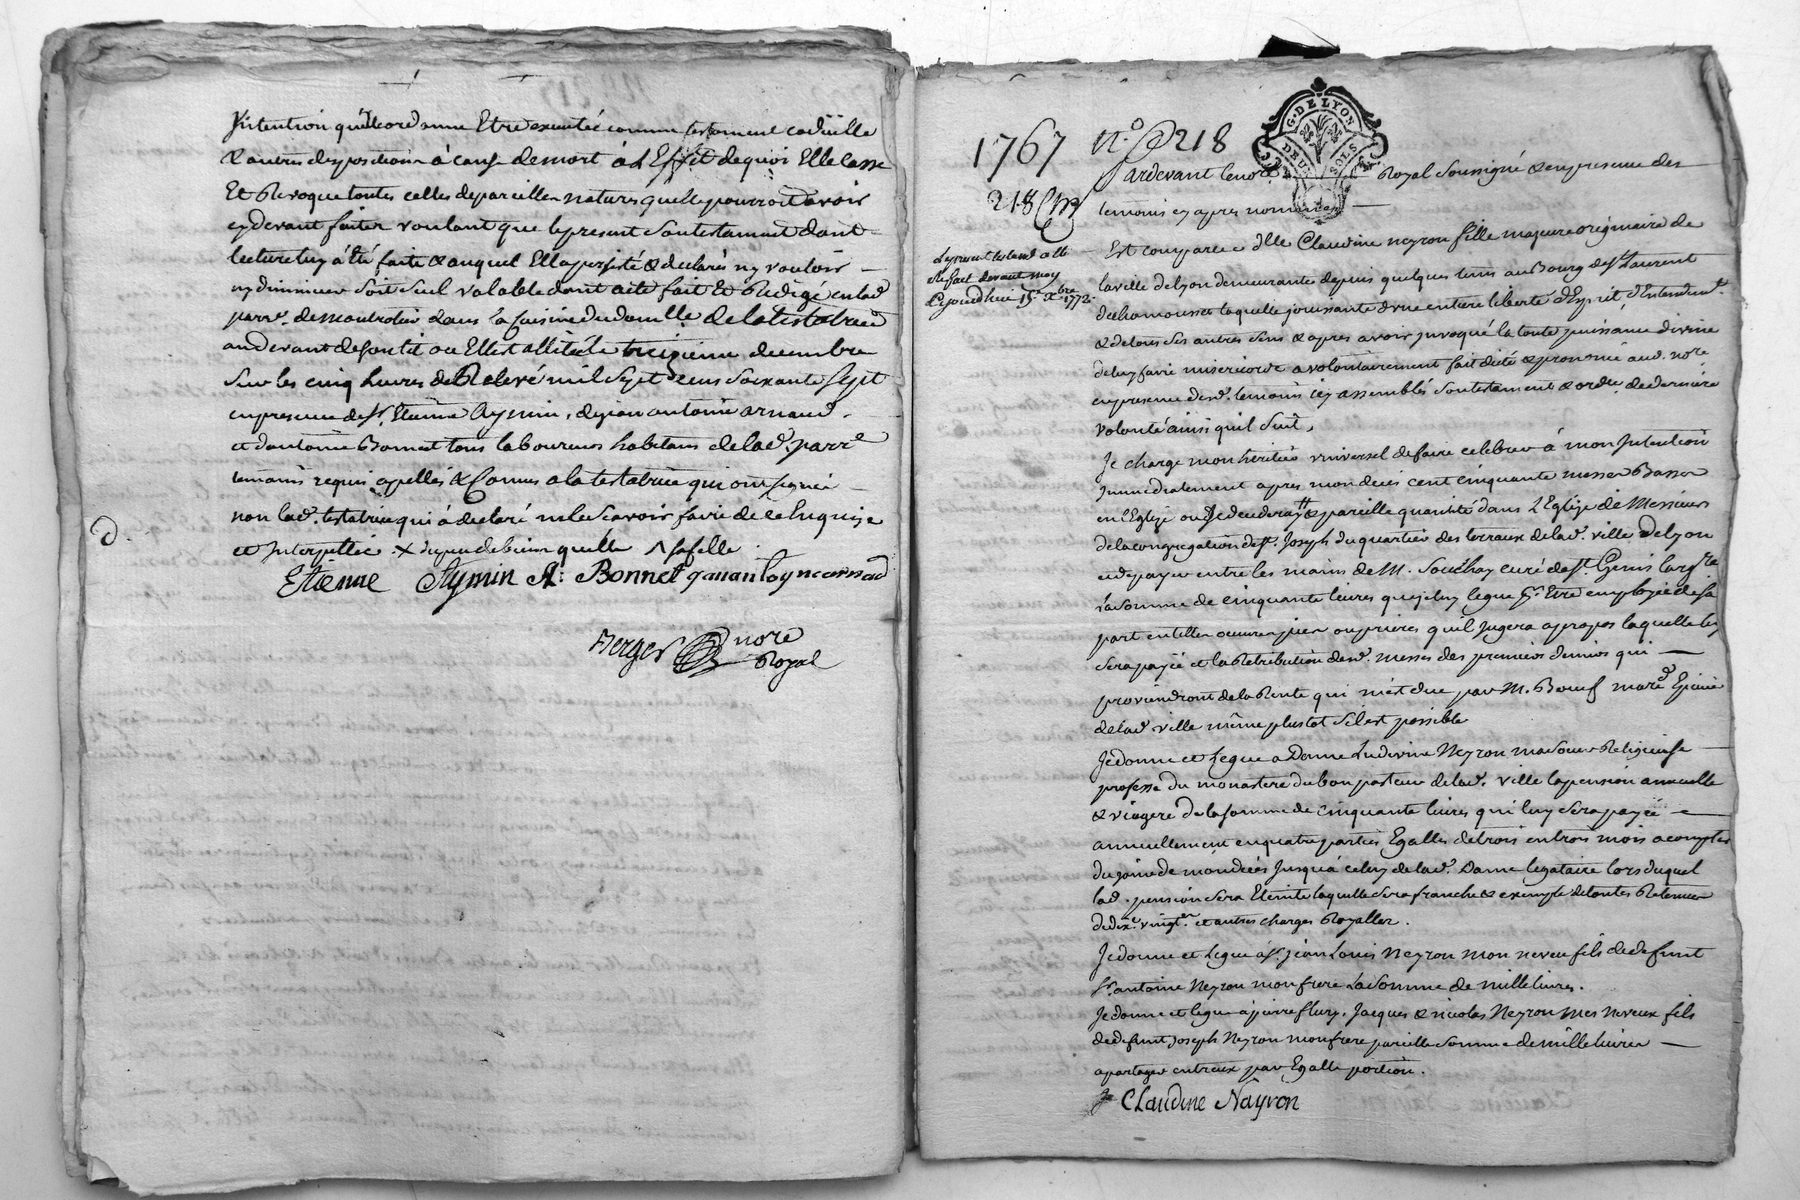 Jntention qu'elle ordonne Etre executée comme testament codicille
& autres dispositions à cause de mort à l'Effet de quoi Elle casse
Et Revoque toutes celles de pareilles natures quelle pourroit avoir
cydevant faites voulant que le present son testament dont
lecture luy à été faite & auquel Ella persisté & declaré ny vouloir
ny diminuer soit seul valable dont acte fait Et Redigé en lad.
parr.e de dans la Cuisine du domille de la testatrice
au devant de son lit ou Elle est allitée le treizieme decembre
sur les cinq heures de Relevé mil sept cens soixante sept
en presence de Sr. Etienne Aymin, de jean antoine arnaud
et d'antoine Bonnet tous laboureurs habitans de lad. parr.e
temoins requis apellés & Connus a la testatrice qui ont signé
non lad. testatrice qui à declaré ne le scavoir faire de ce Enquise
et Interpellée. X du peu de bien quelle
Etienne Aymin A: Bonnet
Berger nore
Royal
G. DE LYON
DEUX SOLS
1767 N.o 218
218
Pardevant le no.re Royal soussigné & en presence des
temoins cy apres nommés
Est comparu d.lle Claudine neyron fille majeure originaire de
la ville de lyon demeurante depuis quelques tems au Bourg de St. Laurent
de chamousset laquelle jouissante d'une entiere liberté d'Esprit, d'Entendem.t
& de tous ses autres sens & apres avoir jnvoqué la toute puissance divine
de luy faire misericorde a volontairement fait dicté & prononcé aud. no.re
en presence desd. temoins icy assemblés son testament & ordre de derniere
volonté ainsi quil suit,
Je charge mon heritier universel de faire celebrer à mon Jntention
Jmmediatement apres mon decés cent cinquante messes Basses
en l'Eglise ou & pareille quantité dans l'Eglise de Messieurs
de la congregation de St. Joseph du quartier des terraux de lad. ville de Lyon
et de payer entre les mains de M. Souchay curé de St. Genis
la somme de cinquante livres que je luy legue pr. Etre employée de sa
part en telles oeuvres pies ou prieres qu'il Jugera apropos laquelle luy
sera payée et la Retribution desd. messes des premiers deniers qui
proviendront de la Rente qui m'est due par M. Boeuf mar.d Epicier
de lad. ville même plustot s'il est possible
Je donne et Legue a Dame Ludivine Neyron ma soeur Religieuse
professe du monastere du bon pasteur de lad. ville la pension annuelle
& viagere de la somme de cinquante livres qui luy sera payée
annuellement en quatre parties Egalles de trois en trois mois a compter
du jour de mon decés Jusqu'à celuy de lad. Dame legataire lors duquel
lad. pension sera Eteinte laquelle sera franche & exempte de toutes Retenues
de dix.e vingt.e et autres charges Royalles.
Je donne et Legue à Sr. jean Louis Neyron mon neveu fils de defunt
Sr. antoine Neyron mon frere la somme de mille livres.
Je donne et legue à pierre flury, Jacques & nicolas Neyron mes neveux fils
de defunt joseph Neyron mon frere pareille somme de mille livres
a partager entreux par Egalle portion.
Claudine Nayron
Le present testament a été
Refait devant moy
Cejourdhui 15 xbre 1772.